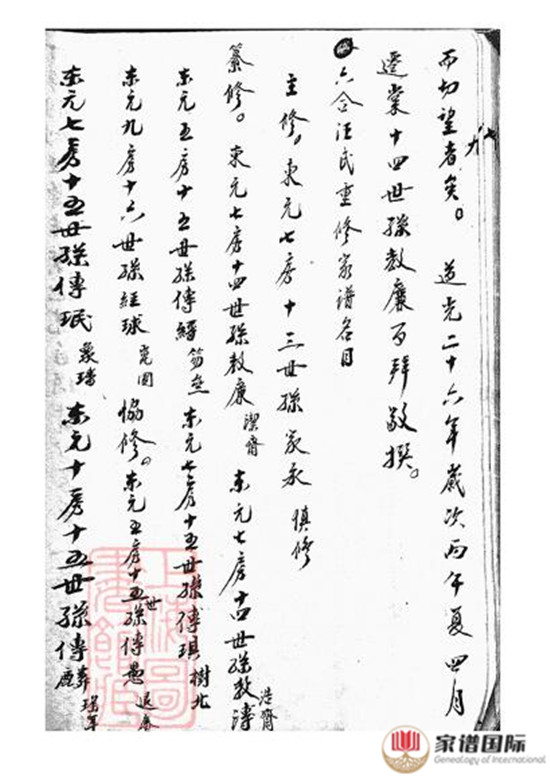 而切望者矣。 道光二十六年歲次丙午夏四月
遷棠十四世孫教廉百拜敬撰。
六合汪氏重修家譜名目
主修。東元七房十三世孫家永 慎修
纂修。東元七房十四世孫教廉 潔齋 東元七房十四世孫教溥 浩齋
東元五房十五世孫傳經 東元七房十五世孫傳琪 樹北
東元九房十六世孫經球 協修。東元五房十五世孫傳愚 退庵
東元七房十五世孫傳珉 東元十房十五世孫傳
上海圖書館藏
家谱国际
Genealogy of International